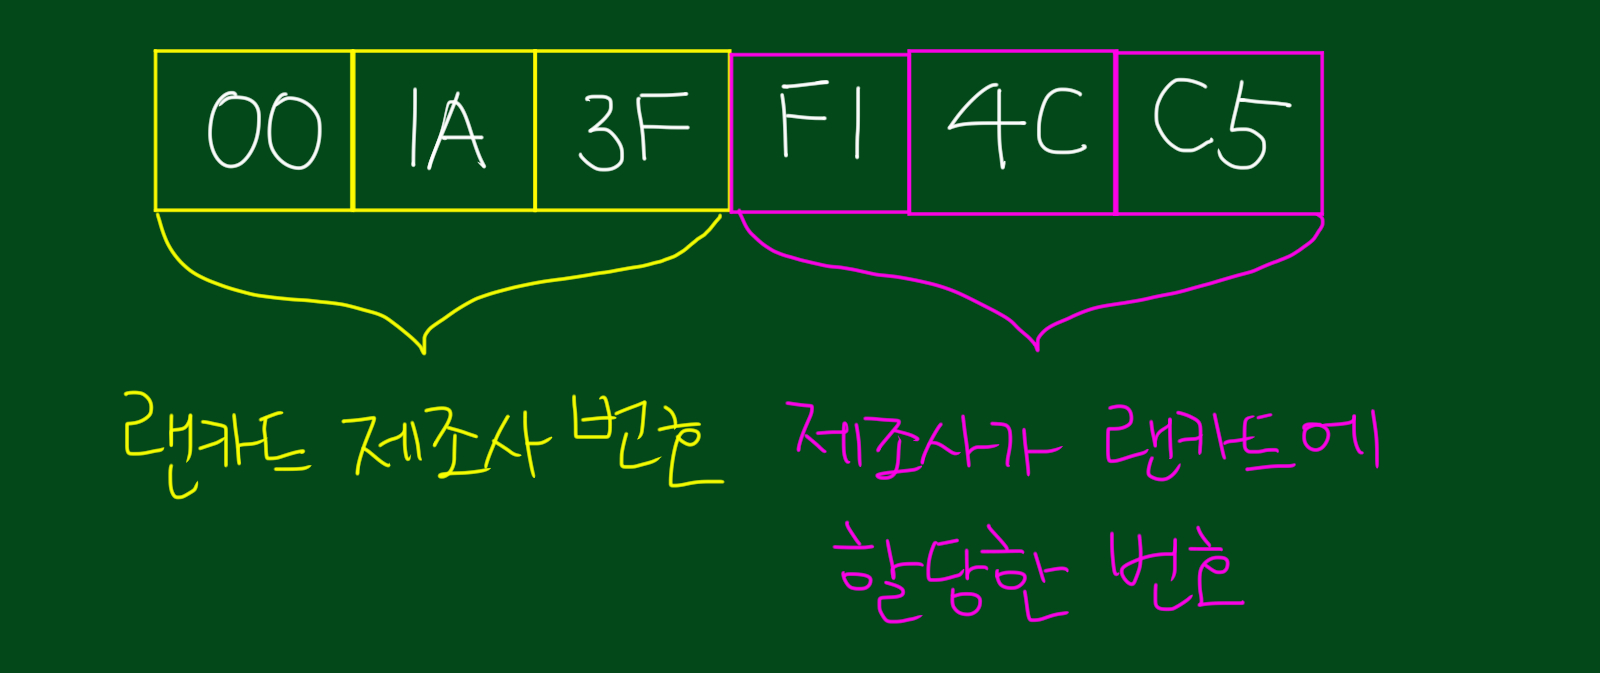 00 1A 3F F1 4C C5
랜카드 제조사 번호
제조사가 랜카드에
할당한 번호